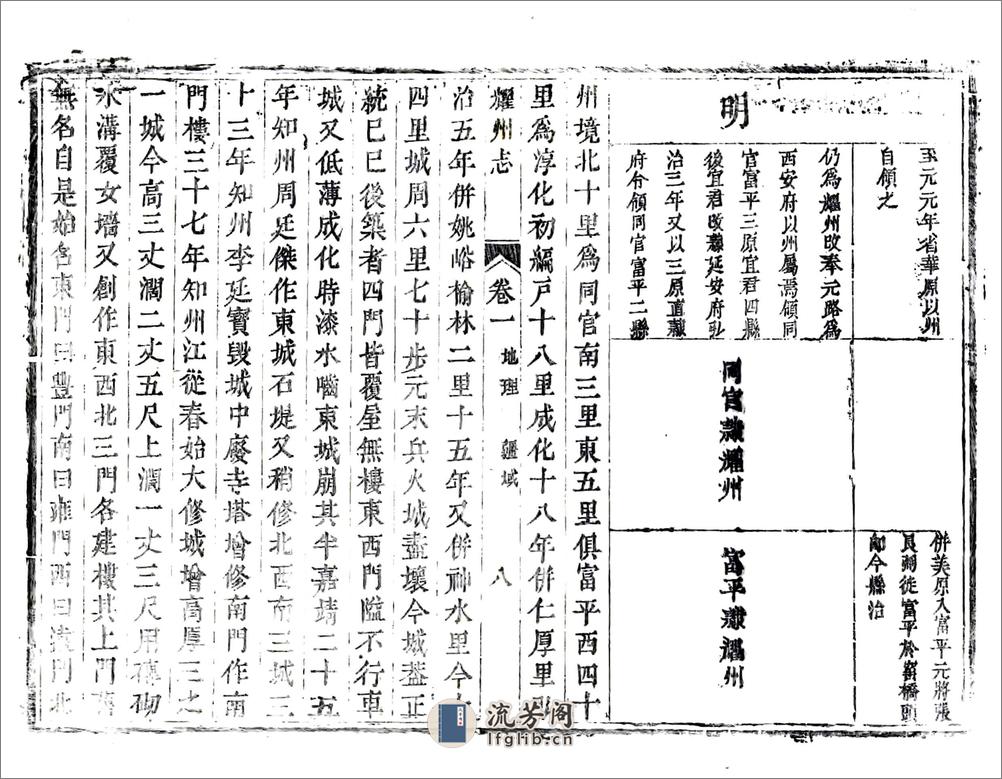 至元元年省華原以州
自領之
併美原入富平元將張
良弼徙富平於窑橋頭
卽今縣治
明
仍爲耀州改奉元路爲
西安府以州屬焉領同
官富平三原宜君四縣
後宜君改隸延安府弘
治三年又以三原直隸
府今領同官富平二縣
同官隸耀州
富平隸耀州
州境北十里爲同官南三里東五里俱富平西四十
里爲淳化初編戸十八里成化十八年併仁厚里弘
耀州志 卷一 地理 疆域 八
治五年併姚峪榆林二里十五年又併神水里今十
四里城周六里七十步元末兵火城盡壞今城蓋正
統己巳後築者四門皆覆屋無樓東西門隘不行車
城又低薄成化時漆水嚙東城崩其半嘉靖二十五
年知州周廷傑作東城石堤又稍修北西南三城三
十三年知州李廷寶毀城中廢寺塔增修南門作南
門樓三十七年知州江從春始大修城增高厚三之
一城今高三丈濶二丈五尺上濶一丈三尺用磚砌
水溝覆女墻又創作東西北三門各建樓其上門舊
無名自是始名東門曰豐門南曰雍門西曰遠門北
流芳阁
lfglib.cn